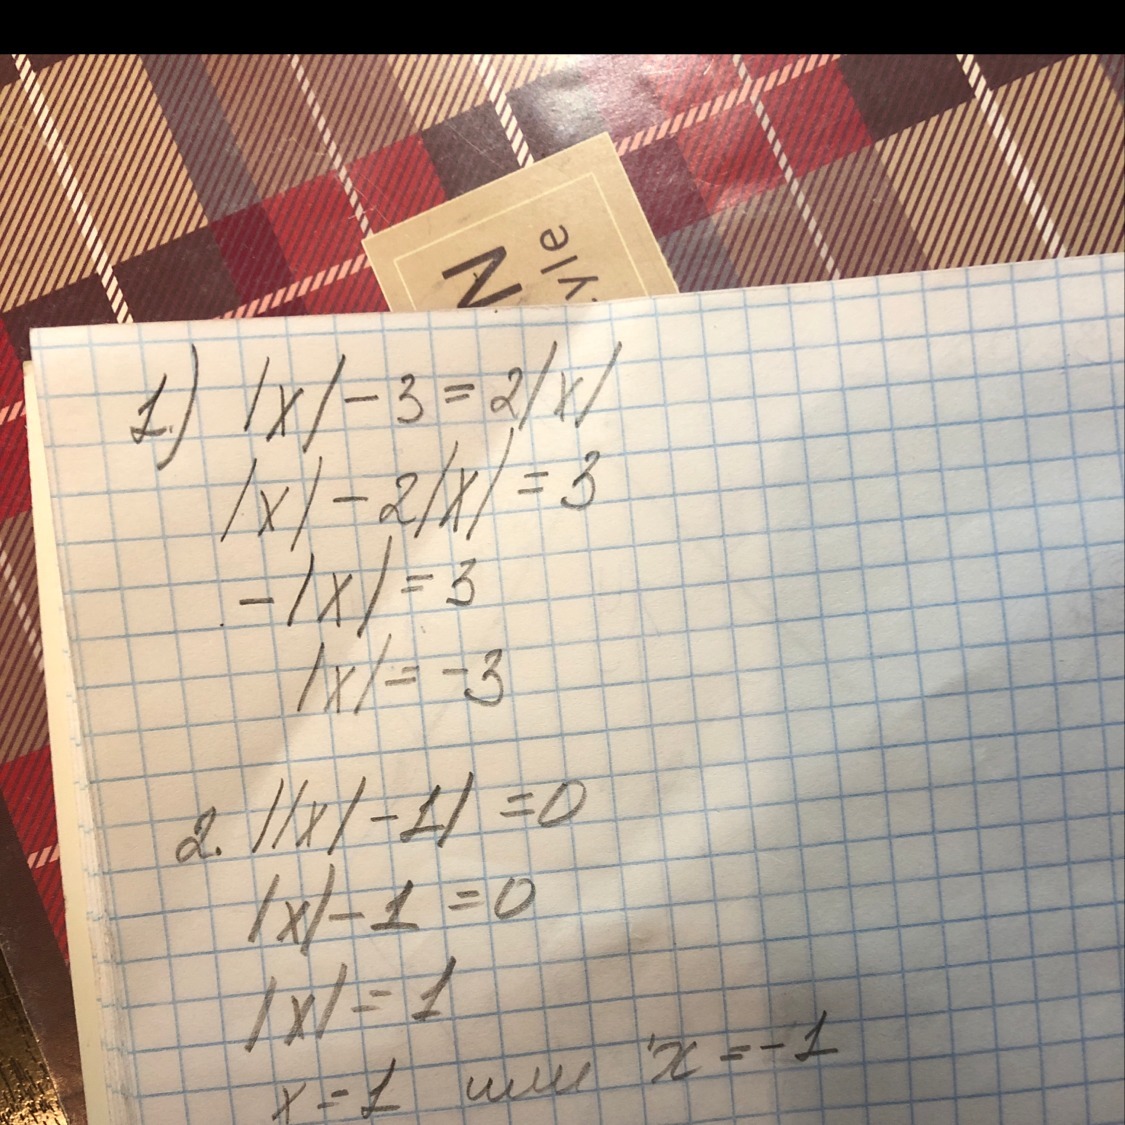 N
yle
1.) |x| - 3 = 2|x|
|x| - 2|x| = 3
-|x| = 3
|x| = -3
2. ||x| - 1| = 0
|x| - 1 = 0
|x| = 1
x = 1 или x = -1